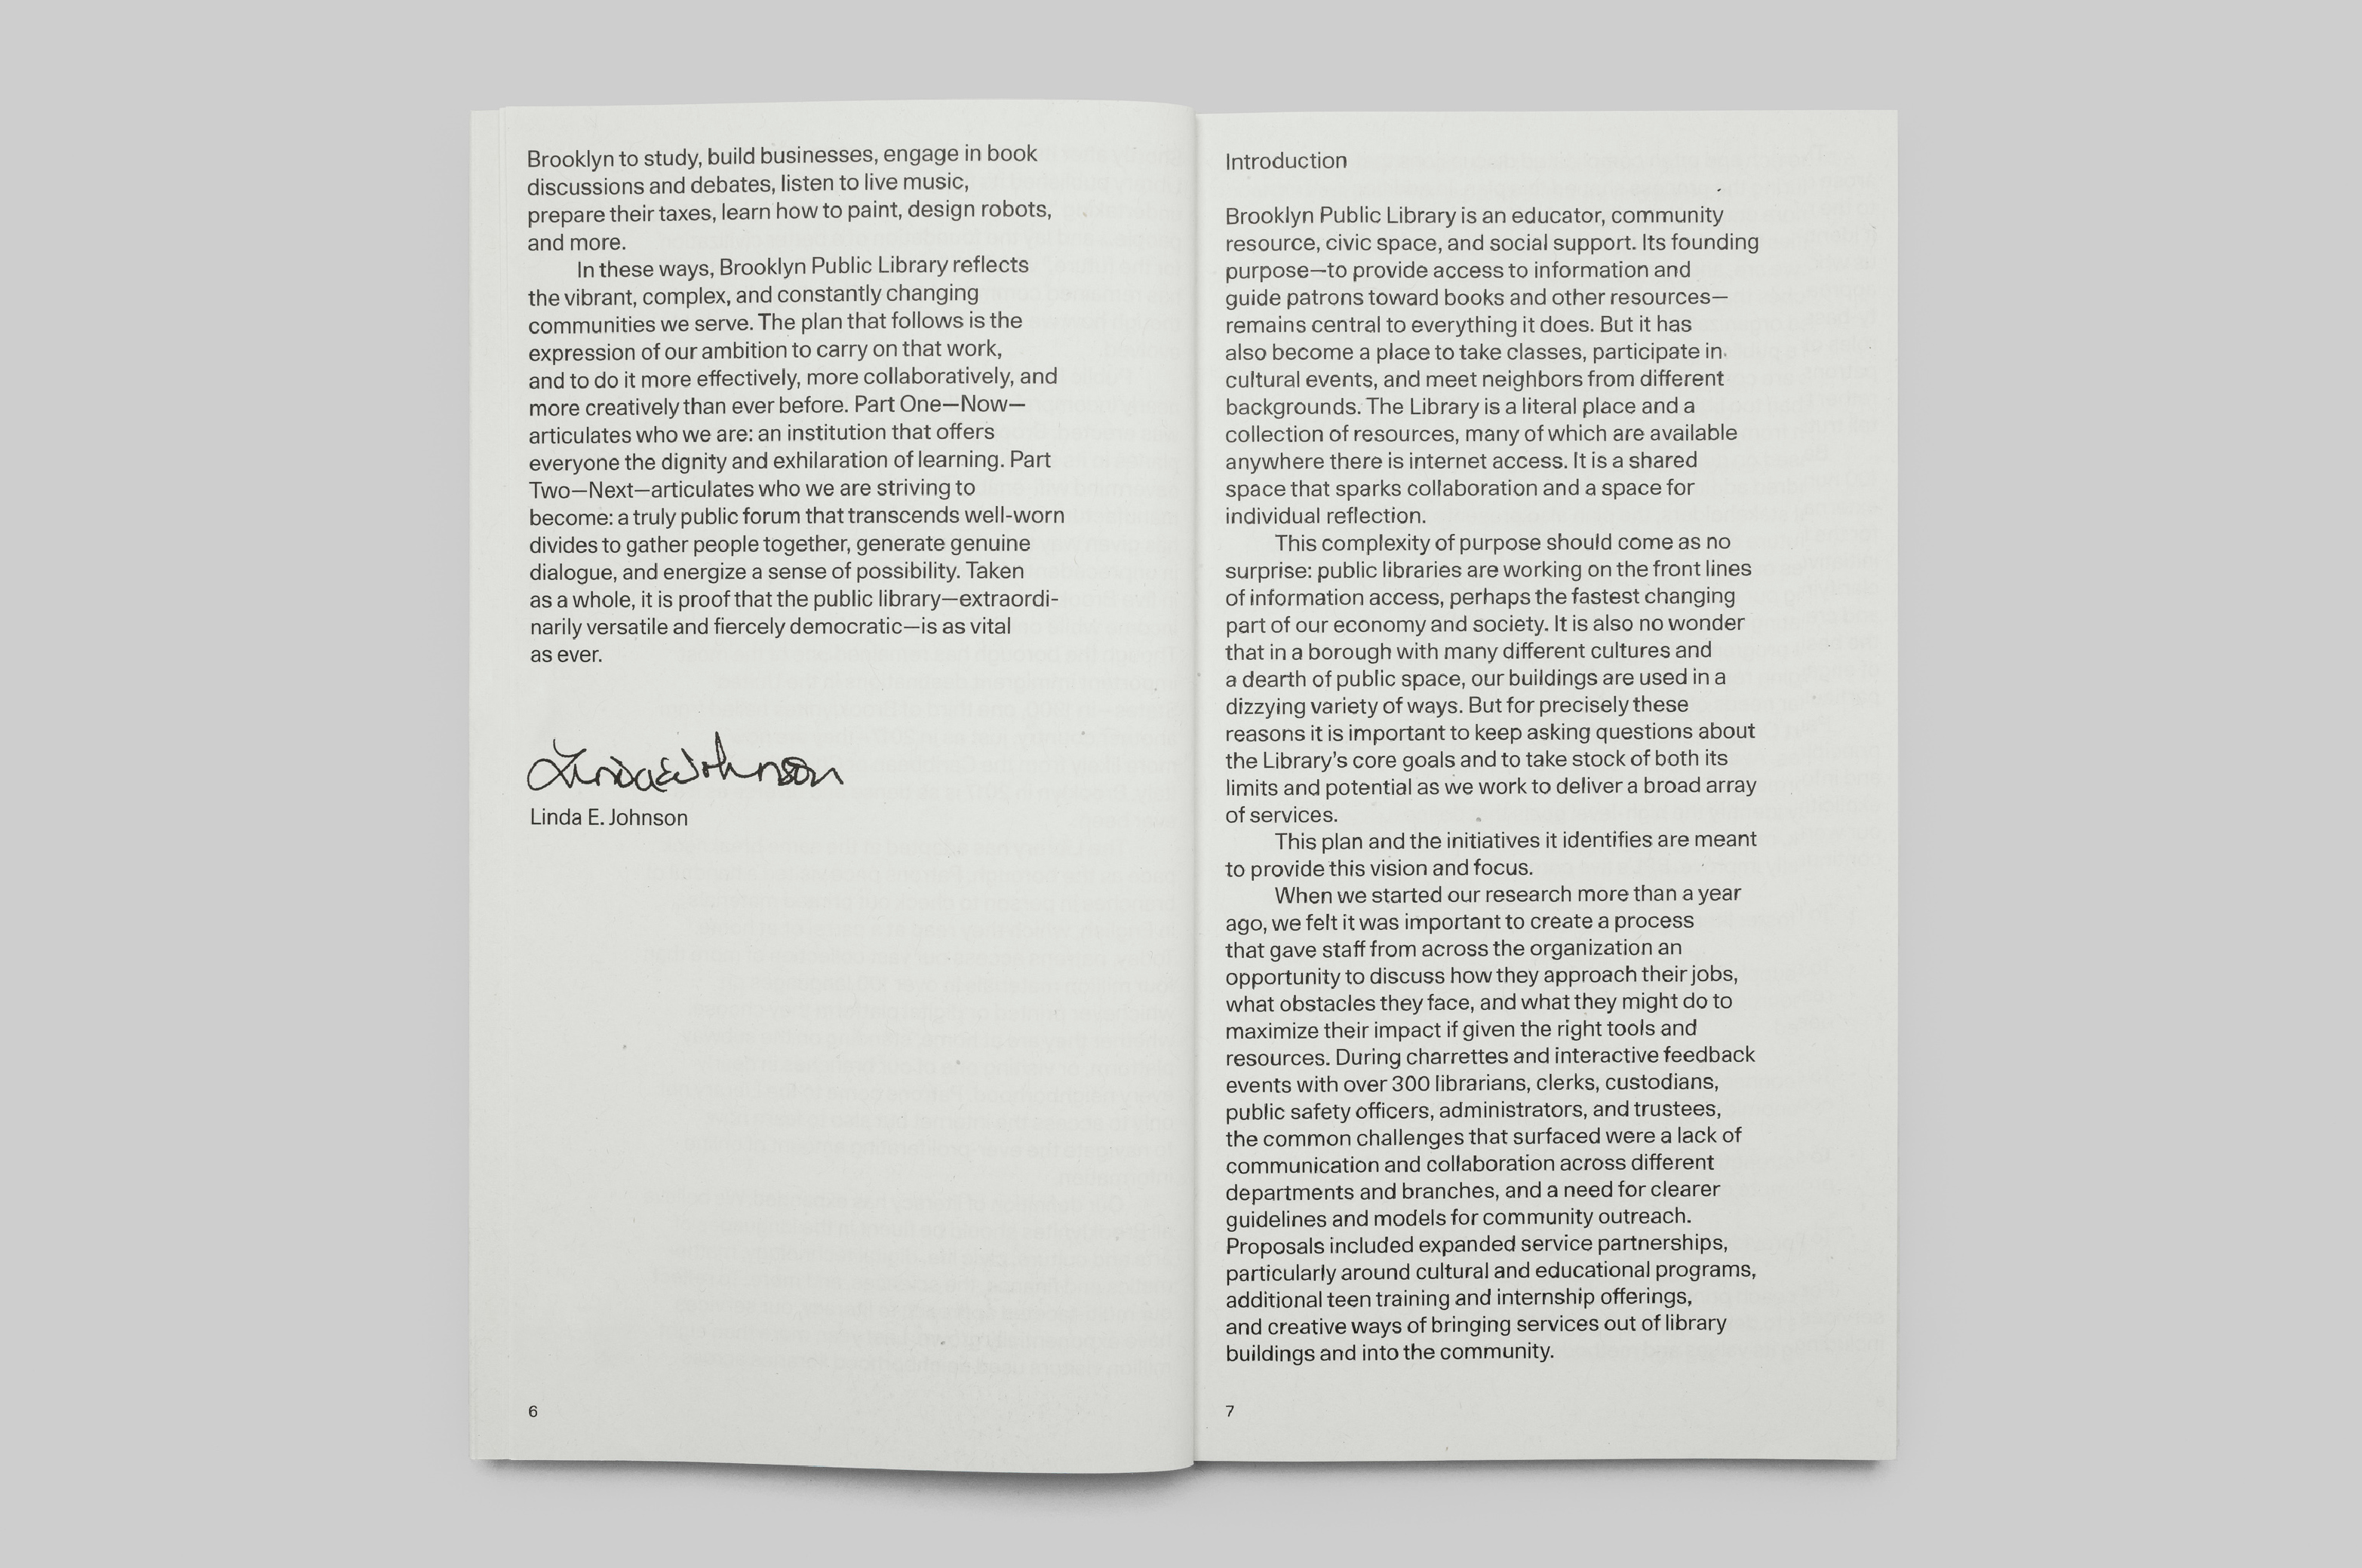 Brooklyn to study, build businesses, engage in book
discussions and debates, listen to live music,
prepare their taxes, learn how to paint, design robots,
and more.
In these ways, Brooklyn Public Library reflects
the vibrant, complex, and constantly changing
communities we serve. The plan that follows is the
expression of our ambition to carry on that work,
and to do it more effectively, more collaboratively, and
more creatively than ever before. Part One—Now—
articulates who we are: an institution that offers
everyone the dignity and exhilaration of learning. Part
Two—Next—articulates who we are striving to
become: a truly public forum that transcends well-worn
divides to gather people together, generate genuine
dialogue, and energize a sense of possibility. Taken
as a whole, it is proof that the public library—extraordi-
narily versatile and fiercely democratic—is as vital
as ever.
Linda E Johnson
Linda E. Johnson
6
Introduction
Brooklyn Public Library is an educator, community
resource, civic space, and social support. Its founding
purpose—to provide access to information and
guide patrons toward books and other resources—
remains central to everything it does. But it has
also become a place to take classes, participate in
cultural events, and meet neighbors from different
backgrounds. The Library is a literal place and a
collection of resources, many of which are available
anywhere there is internet access. It is a shared
space that sparks collaboration and a space for
individual reflection.
This complexity of purpose should come as no
surprise: public libraries are working on the front lines
of information access, perhaps the fastest changing
part of our economy and society. It is also no wonder
that in a borough with many different cultures and
a dearth of public space, our buildings are used in a
dizzying variety of ways. But for precisely these
reasons it is important to keep asking questions about
the Library's core goals and to take stock of both its
limits and potential as we work to deliver a broad array
of services.
This plan and the initiatives it identifies are meant
to provide this vision and focus.
When we started our research more than a year
ago, we felt it was important to create a process
that gave staff from across the organization an
opportunity to discuss how they approach their jobs,
what obstacles they face, and what they might do to
maximize their impact if given the right tools and
resources. During charrettes and interactive feedback
events with over 300 librarians, clerks, custodians,
public safety officers, administrators, and trustees,
the common challenges that surfaced were a lack of
communication and collaboration across different
departments and branches, and a need for clearer
guidelines and models for community outreach.
Proposals included expanded service partnerships,
particularly around cultural and educational programs,
additional teen training and internship offerings,
and creative ways of bringing services out of library
buildings and into the community.
7